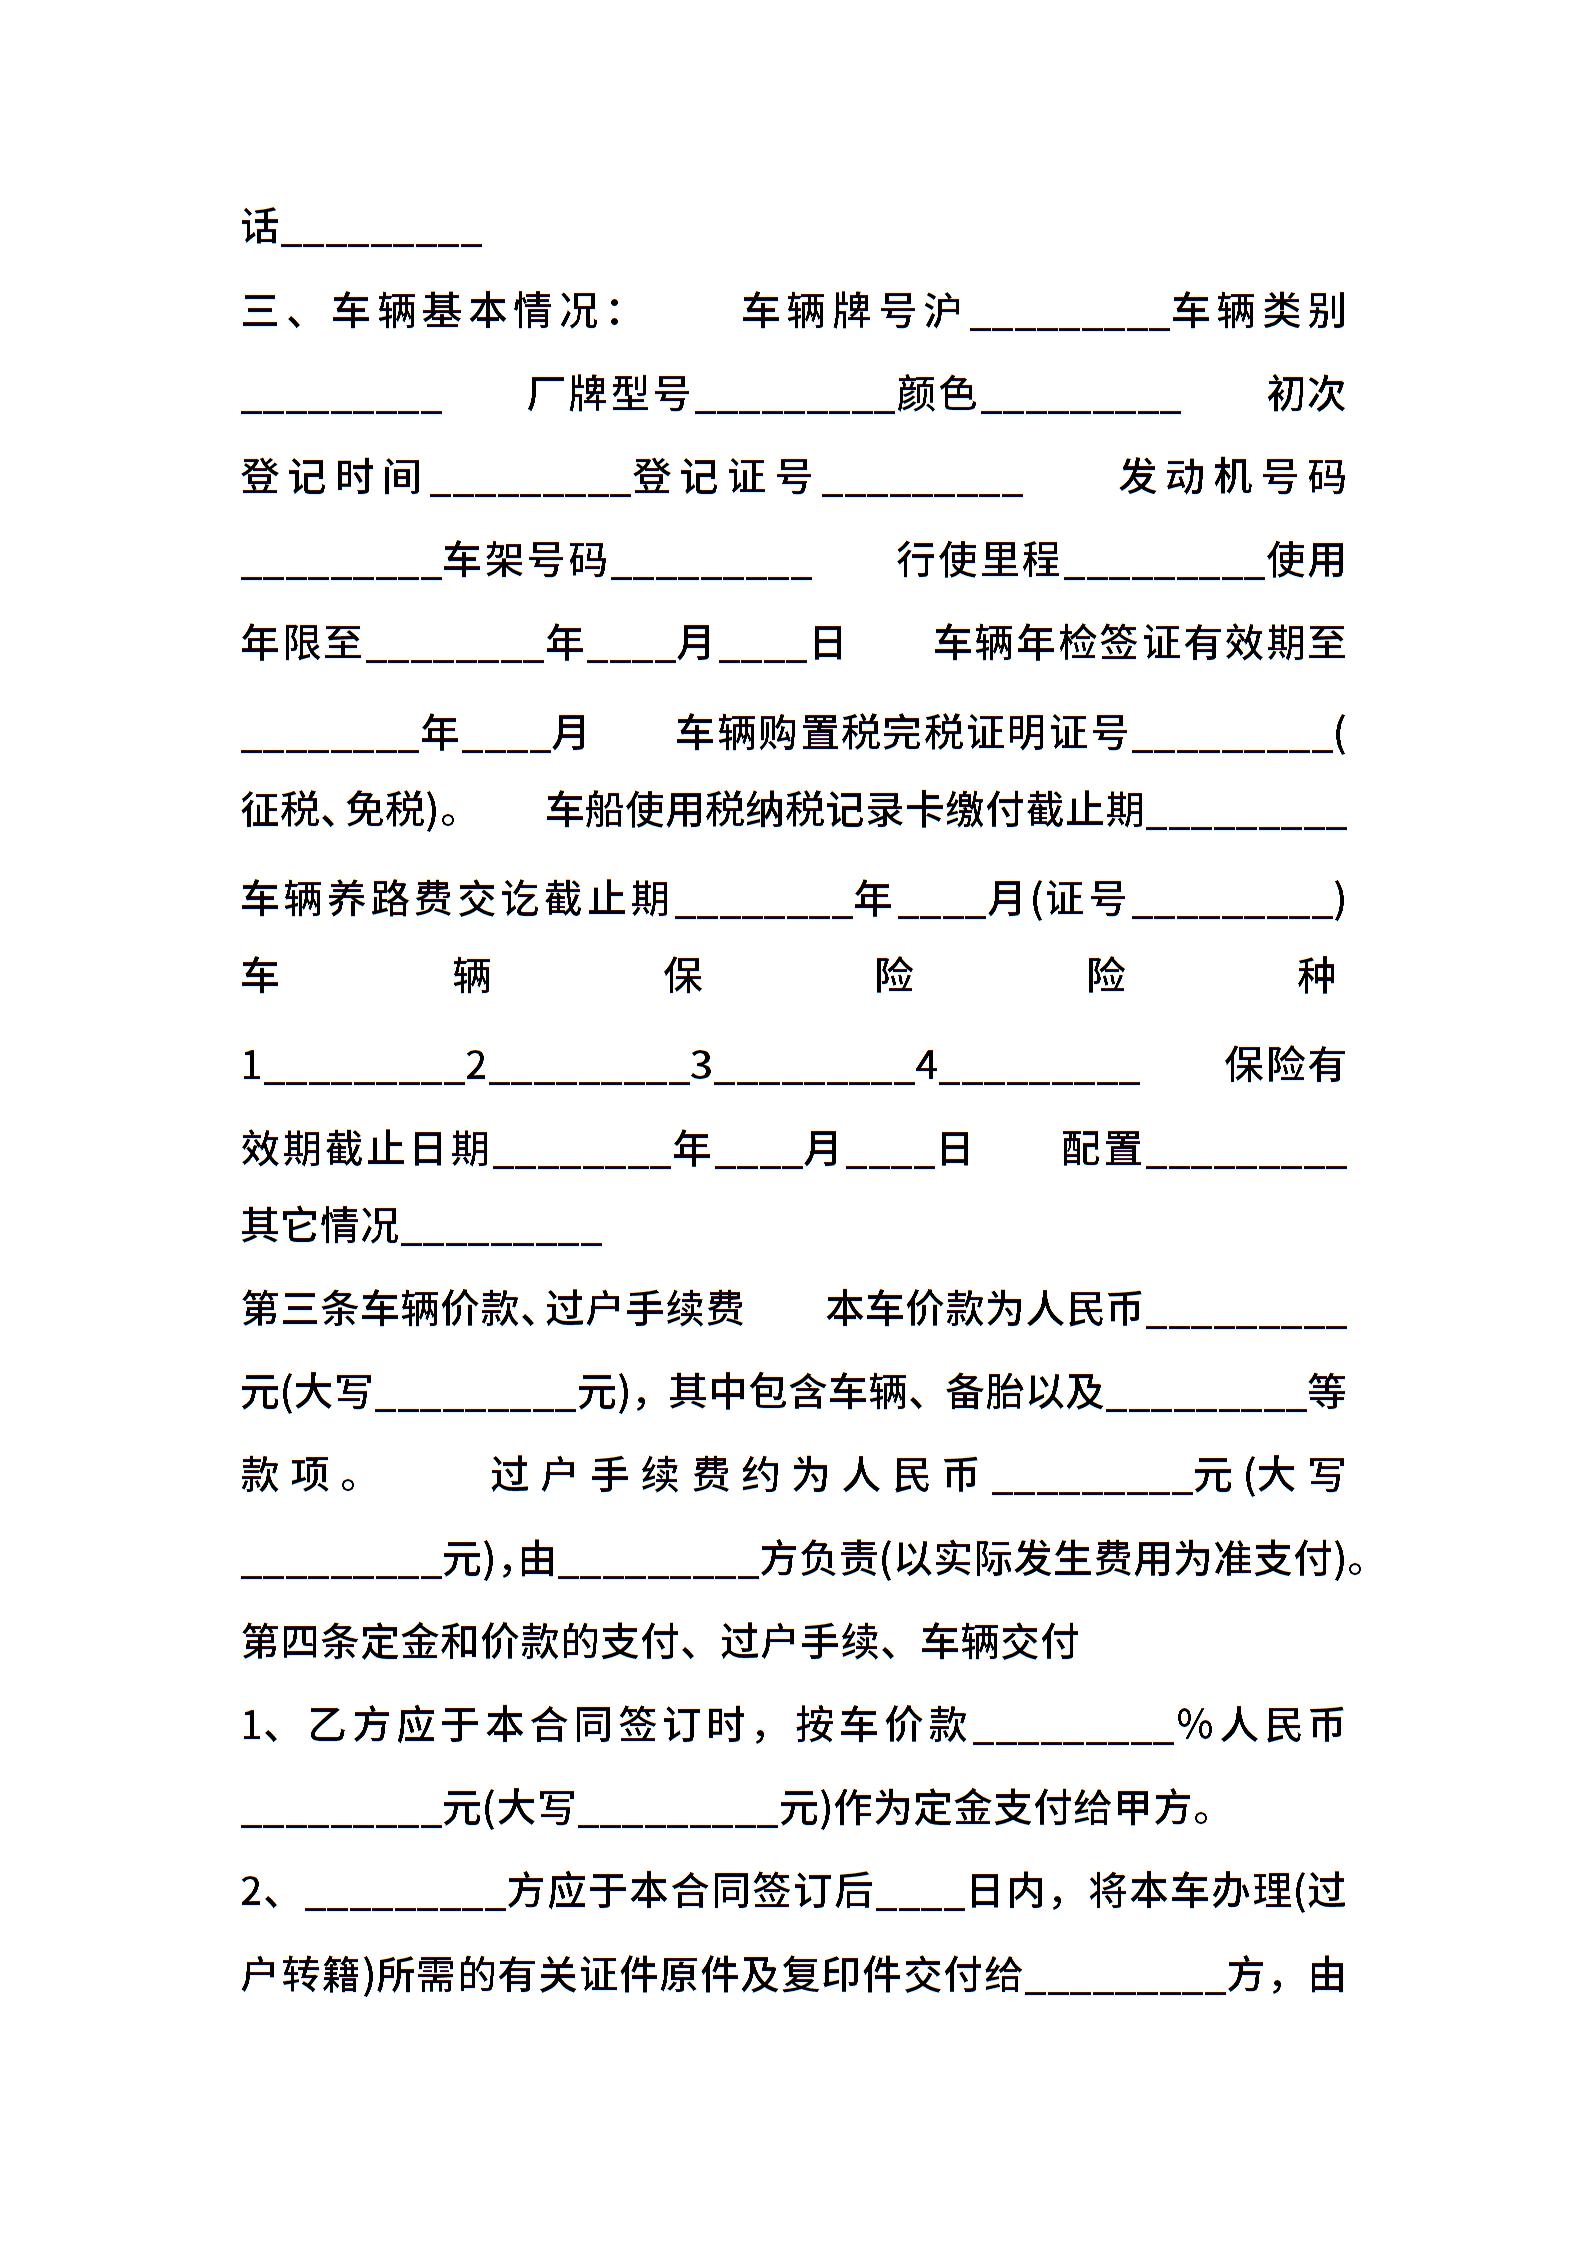 话_________
三、车辆基本情况： 车辆牌号沪_________车辆类别
_________ 厂牌型号_________颜色_________ 初次
登记时间_________登记证号_________ 发动机号码
_________车架号码_________ 行使里程_________使用
年限至________年____月____日 车辆年检签证有效期至
________年____月 车辆购置税完税证明证号_________(
征税、免税)。 车船使用税纳税记录卡缴付截止期_________
车辆养路费交讫截止期________年____月(证号_________)
车辆保险险种
1_________2_________3_________4_________ 保险有
效期截止日期________年____月____日 配置_________
其它情况_________
第三条车辆价款、过户手续费 本车价款为人民币_________
元(大写_________元)，其中包含车辆、备胎以及_________等
款项。 过户手续费约为人民币_________元(大写
_________元)，由_________方负责(以实际发生费用为准支付)。
第四条定金和价款的支付、过户手续、车辆交付
1、乙方应于本合同签订时，按车价款_________%人民币
_________元(大写_________元)作为定金支付给甲方。
2、_________方应于本合同签订后____日内，将本车办理(过
户转籍)所需的有关证件原件及复印件交付给_________方，由